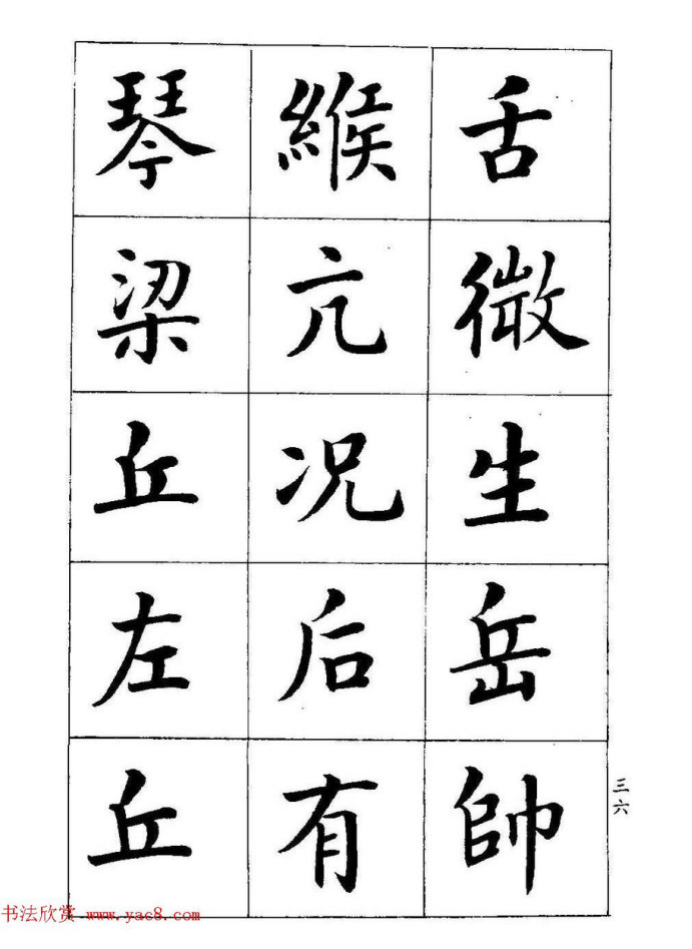 舌微生岳帥
緱亢况后有
琴梁丘左丘
三六
书法欣赏 www.yac8.com